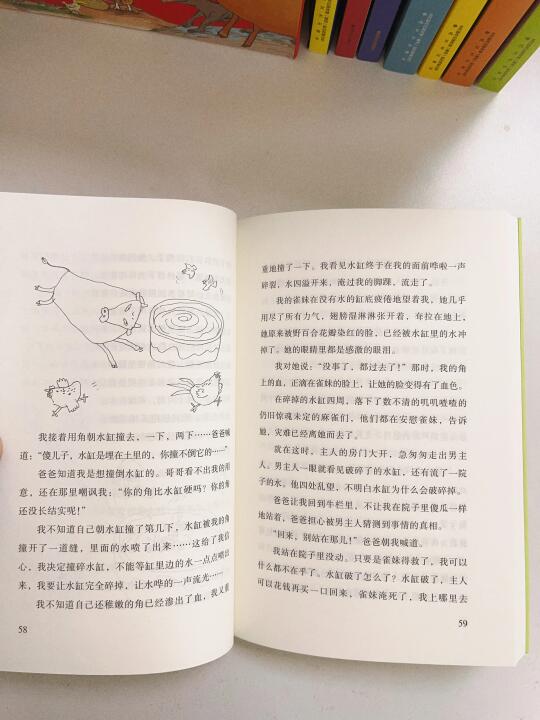 我接着用角朝水缸撞去，一下，两下……爸爸喊
道：“傻儿子，水缸是埋在土里的，你撞不倒它的……”
爸爸知道我是想撞倒水缸的。哥哥看不出我的用
意，还在那里嘲讽我：“你的角比水缸硬吗？你的角
还没长结实呢！”
我不知道自己朝水缸撞了第几下，水缸被我的角
撞开了一道缝，里面的水喷了出来……这给了我信
心，我决定撞碎水缸，不能等缸里边的水一点点喷出
来，我要让水缸完全碎掉，让水哗的一声流光……
我不知道自己还稚嫩的角已经渗出了血，我又重
58
重地撞了一下。我看见水缸终于在我的面前哗啦一声
碎裂，水四溢开来，淹过我的脚踝，流走了。
我的雀妹在没有水的缸底疲倦地望着我，她几乎
用尽了所有力气，翅膀湿淋淋张开着，耷拉在地上，
她原来被野百合花瓣染红的脸，已经被水缸里的水冲
掉了。她的眼睛里都是感激的眼泪。
我对她说：“没事了，都过去了！”那时，我的角
上的血，正滴在雀妹的脸上，让她的脸变得有了血色。
在碎掉的水缸四周，落下了数不清的叽叽喳喳的
仍旧惊魂未定的麻雀们，他们都在安慰雀妹，告诉
她，灾难已经离她而去了。
就在这时，主人的房门大开，急匆匆走出男主
人。男主人一眼就看见破碎了的水缸，还有流了一院
子的水。他四处乱望，不明白水缸为什么会破碎掉。
爸爸让我回到牛栏里，不让我在院子里傻瓜一样
地站着，爸爸担心被男主人猜测到事情的真相。
“回来，别站在那儿！”爸爸朝我喊道。
我站在院子里没动。只要是雀妹得救了，我可以
什么都不在乎了。水缸破了怎么了？水缸破了，主人
可以花钱再买一口回来，雀妹淹死了，我上哪里去
59